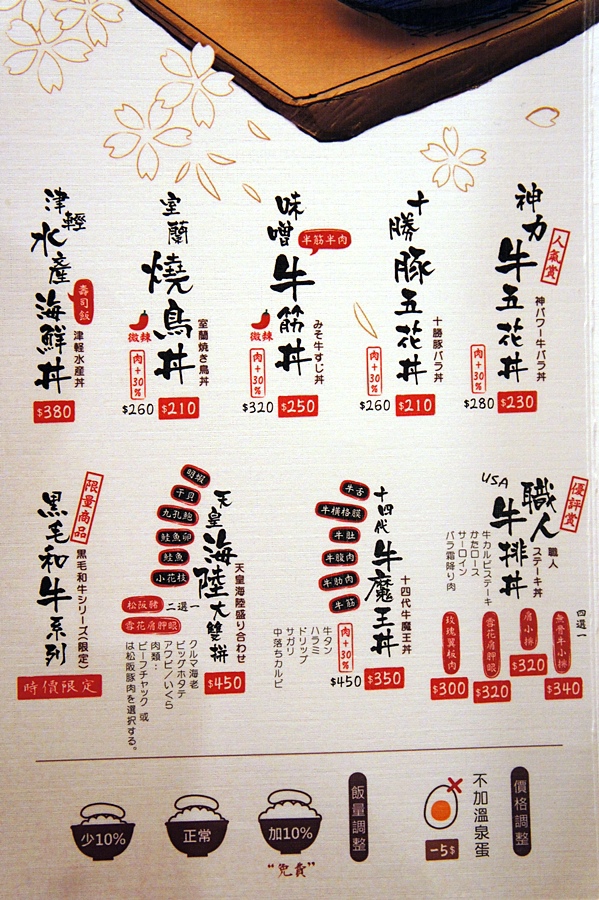 神力牛五花丼
人氣賞
神パワー牛バラ丼
$230
肉+30%
$280
十勝豚五花丼
十勝豚バラ丼
$210
肉+30%
$260
味噌牛筋丼
半筋半肉
みそ牛すじ丼
$250
微辣
肉+30%
$320
室蘭燒鳥丼
室蘭焼き鳥丼
$210
微辣
肉+30%
$260
津輕水產海鮮丼
壽司飯
津軽水産丼
$380
優評賞
USA
職人牛排丼
職人
ステーキ丼
四選一
無骨牛小排
$340
肩小排
$320
雪花肩胛眼
$320
玫瑰翼板肉
$300
牛カルビステーキ
かたロース
サーロイン
バラ霜降り肉
十四代牛魔王丼
十四代牛魔王丼
$350
肉+30%
$450
牛舌
牛橫格膜
牛肚
牛腹肉
牛肋肉
牛筋
牛タン
ハラミ
ドリップ
サガリ
中落ちカルビ
天皇海陸大雙拼
天皇海陸盛り合わせ
$450
明蝦
干貝
九孔鮑
鮭魚卵
鮭魚
小花枝
二選一
松阪豬
雪花肩胛眼
クルマ海老
ビッグホタテ
アワビ/いくら
肉類：
ビーフチャック 或
は松阪豚肉を選択する。
限量商品
黑毛和牛系列
黒毛和牛シリーズ(限定)
時價限定
價格調整
不加溫泉蛋
-5$
飯量調整
加10%
正常
少10%
"免費"